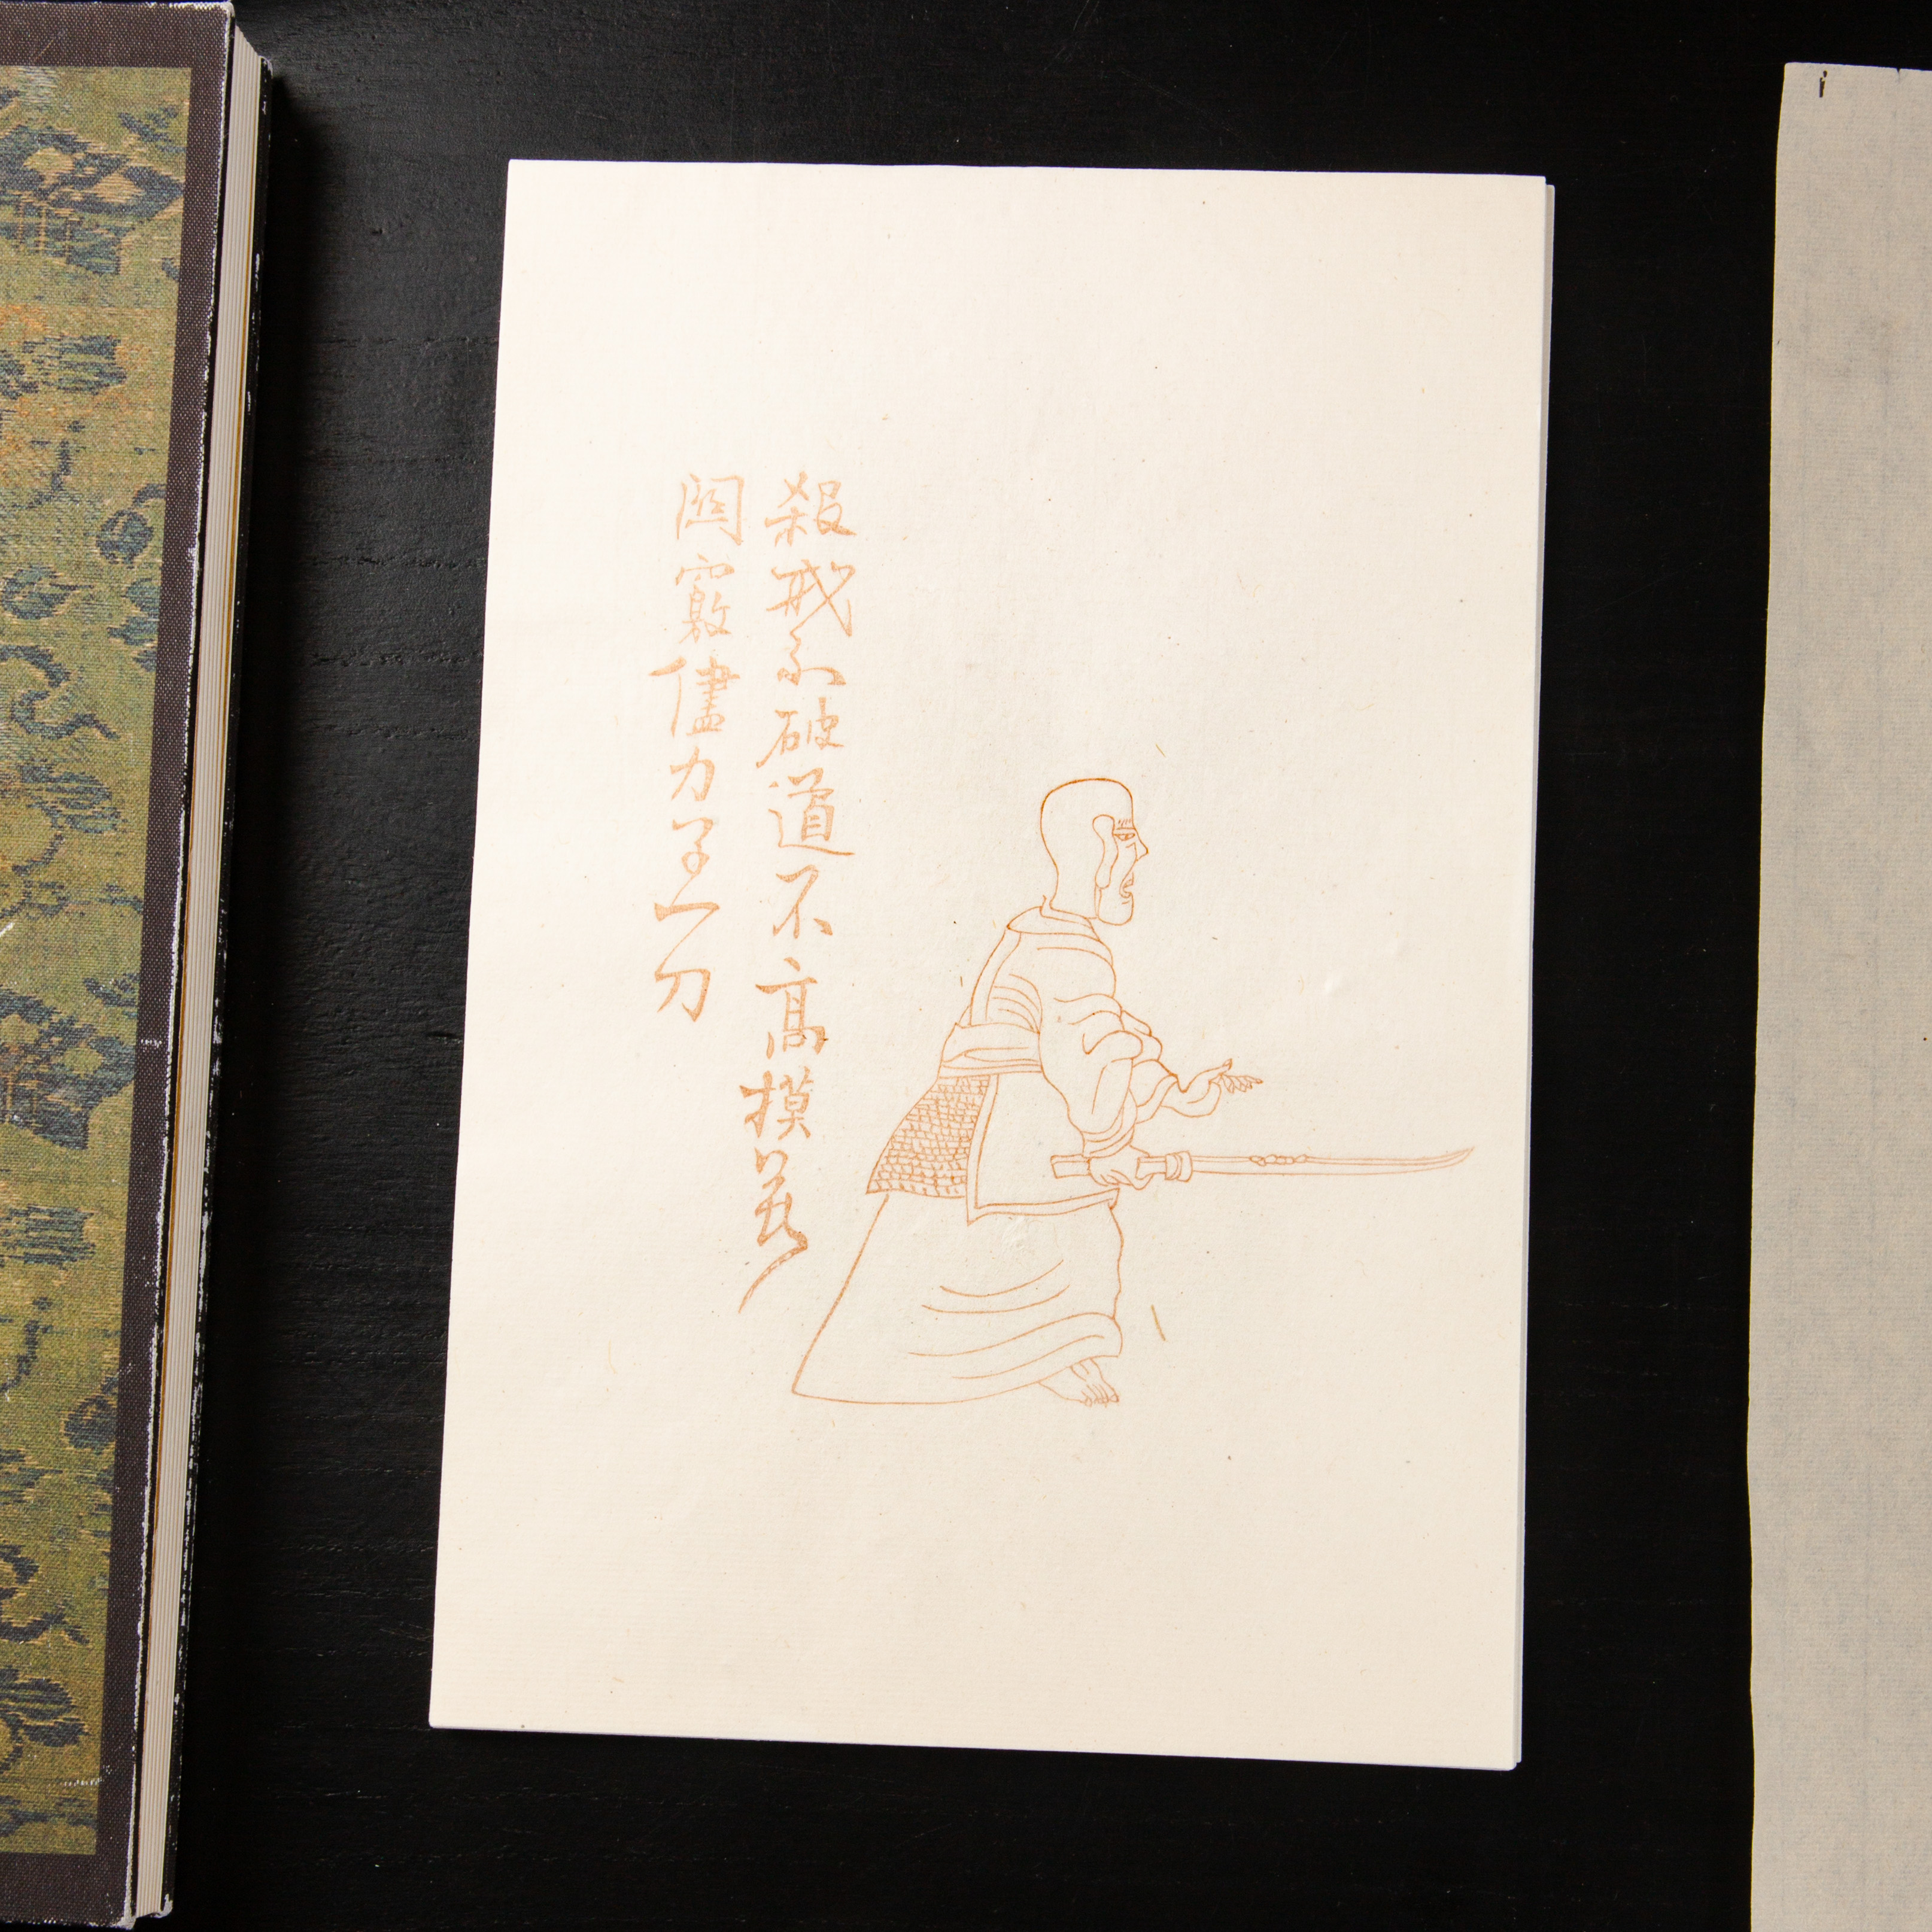 殺戒不破道不高摸着
關竅儘力予一刀